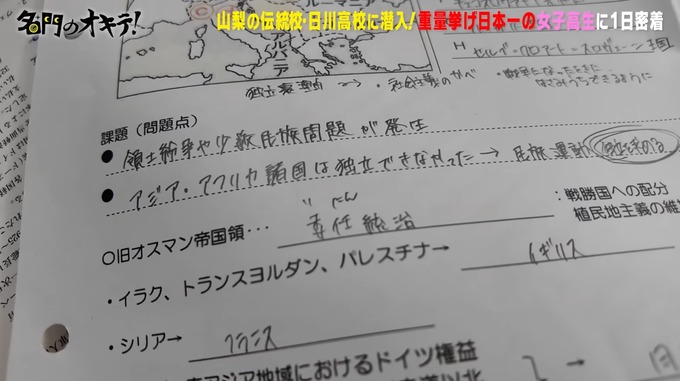 名門のオキテ!
山梨の伝統校・日川高校に潜入!重量挙げ日本一の女子高生に1日密着
ルバニア
H セルブ・クロアート・スロヴェーン王国
独立運動 → ・社会主義のカベ
・戦争になったときに
はさみうちできるように
課題(問題点)
● 領土紛争や少数民族問題が発生
● アジア・アフリカ諸国は独立できなかった → 民族運動
〇旧オスマン帝国領… 委任統治
いにん
:戦勝国への配分
植民地主義の維
・イラク、トランスヨルダン、パレスチナ→ イギリス
・シリア→ フランス
アジア地域におけるドイツ権益